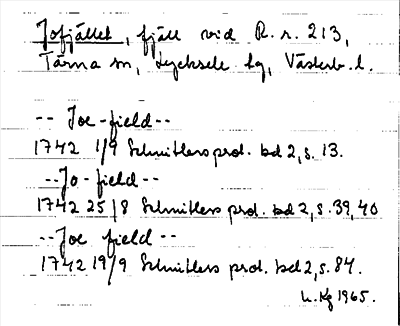 Jofjället, fjäll vid R. r. 213,
Tärna sn, Lycksele lg, Västerb. l.
-- Joe-field --
1742 1/9 Schnitlers prot. bd 2, s. 13.
-- Jo-field --
1742 25/8 Schnitlers prot. bd 2, s. 39, 40
-- Joe field --
1742 19/9 Schnitlers prot. bd 2, s. 84.
1965.